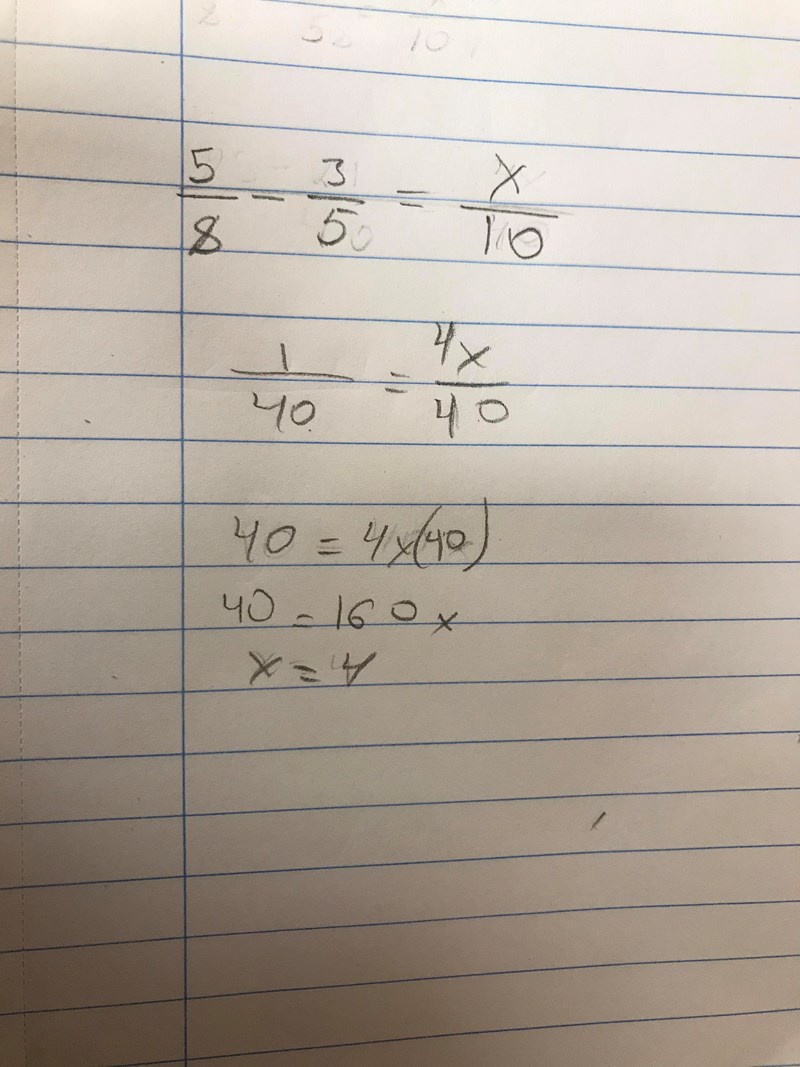 5/8 - 3/5 = x/10
1/40 = 4x/40
40 = 4x(40)
40 = 160x
x = 4